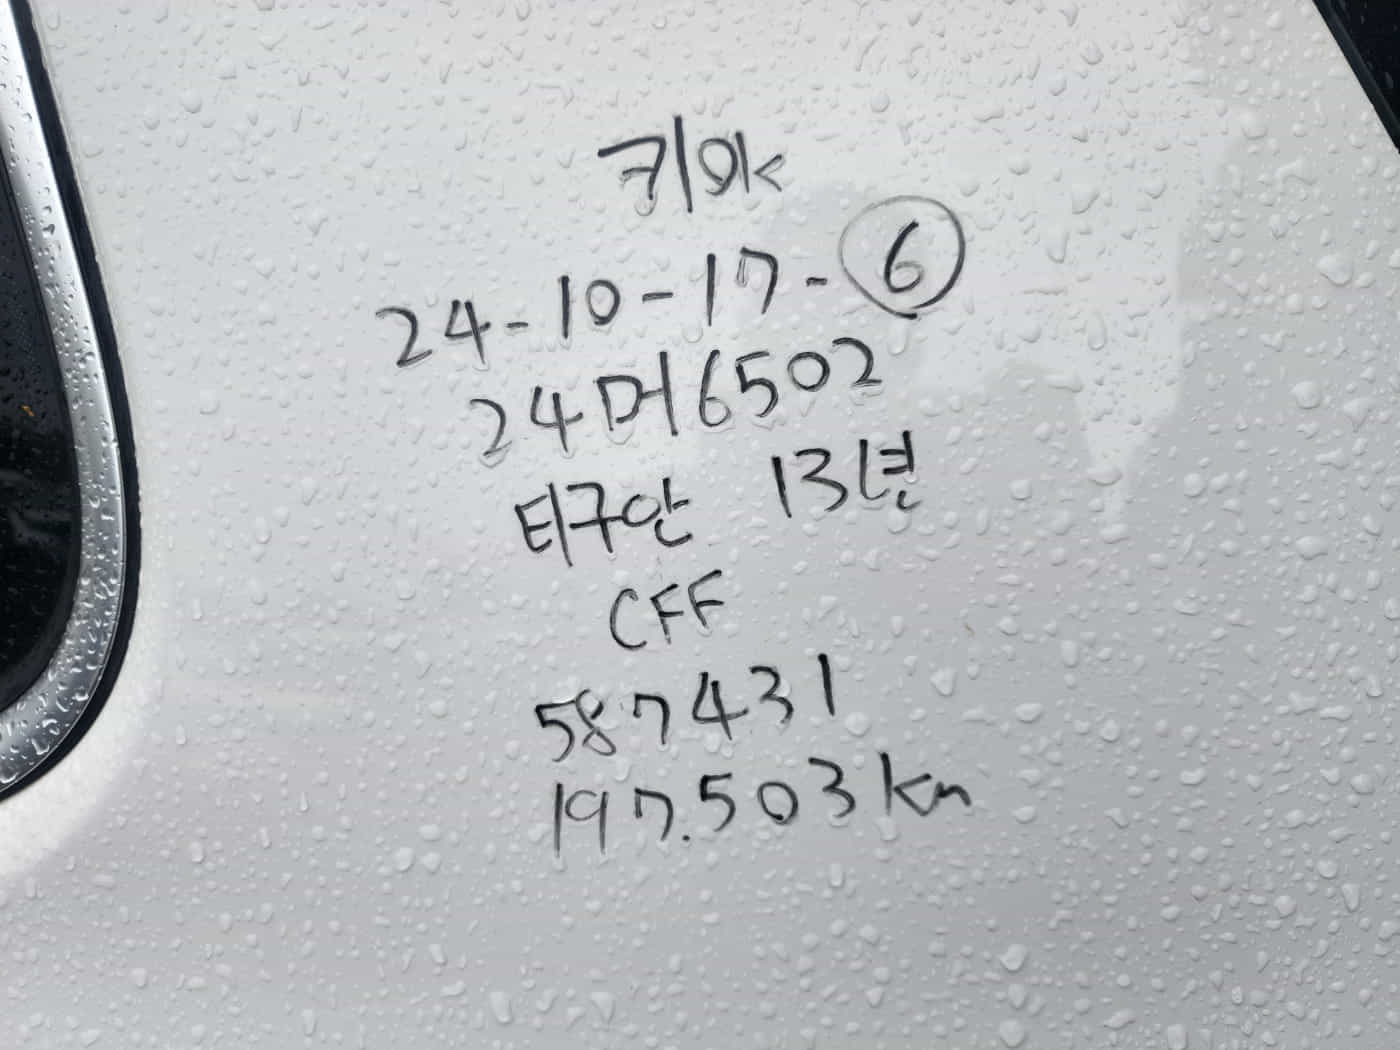 키 OK
24-10-17-⑥
24머6502
티구안 13년
CFF
587431
197.503km